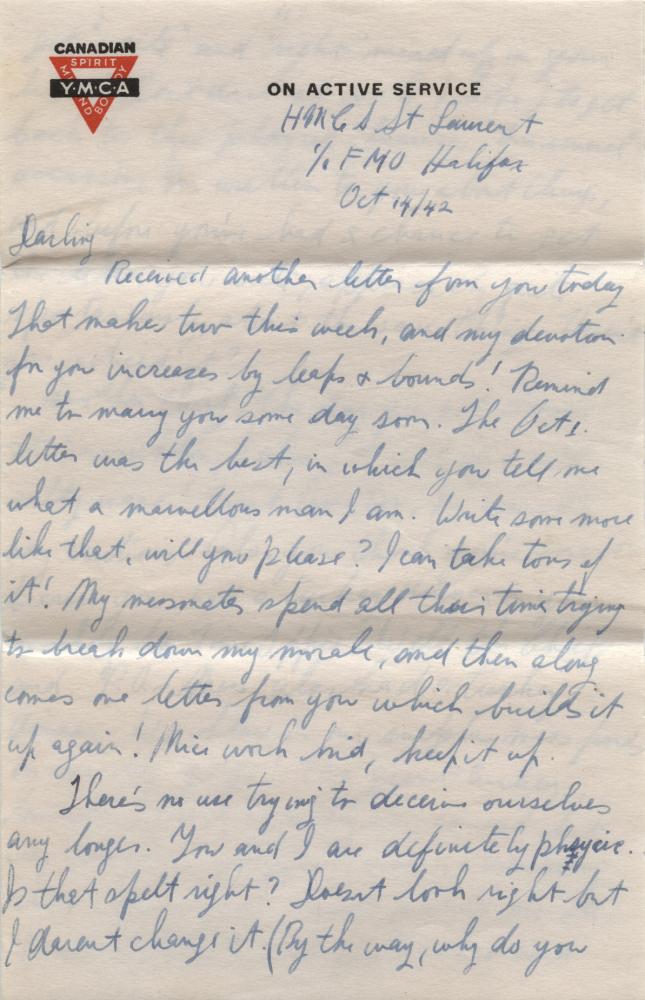 CANADIAN
SPIRIT
MIND
Y·M·C·A
BODY
ON ACTIVE SERVICE
HMCS St Laurent
c/o FMO Halifax
Oct 14/42
Darling
Received another letter from you today
That makes two this week, and my devotion
for you increases by leaps & bounds! Remind
me to marry you some day soon. The Oct 1.
letter was the best, in which you tell me
what a marvellous man I am. Write some more
like that, will you please? I can take tons of
it! My messmates spend all their time trying
to break down my morale, and then along
comes one letter from you which builds it
up again! Nice work kid, keep it up.
There's no use trying to deceive ourselves
any longer. You and I are definitely
Is that spelt right? Doesnt look right but
I darent change it. (By the way, why do you